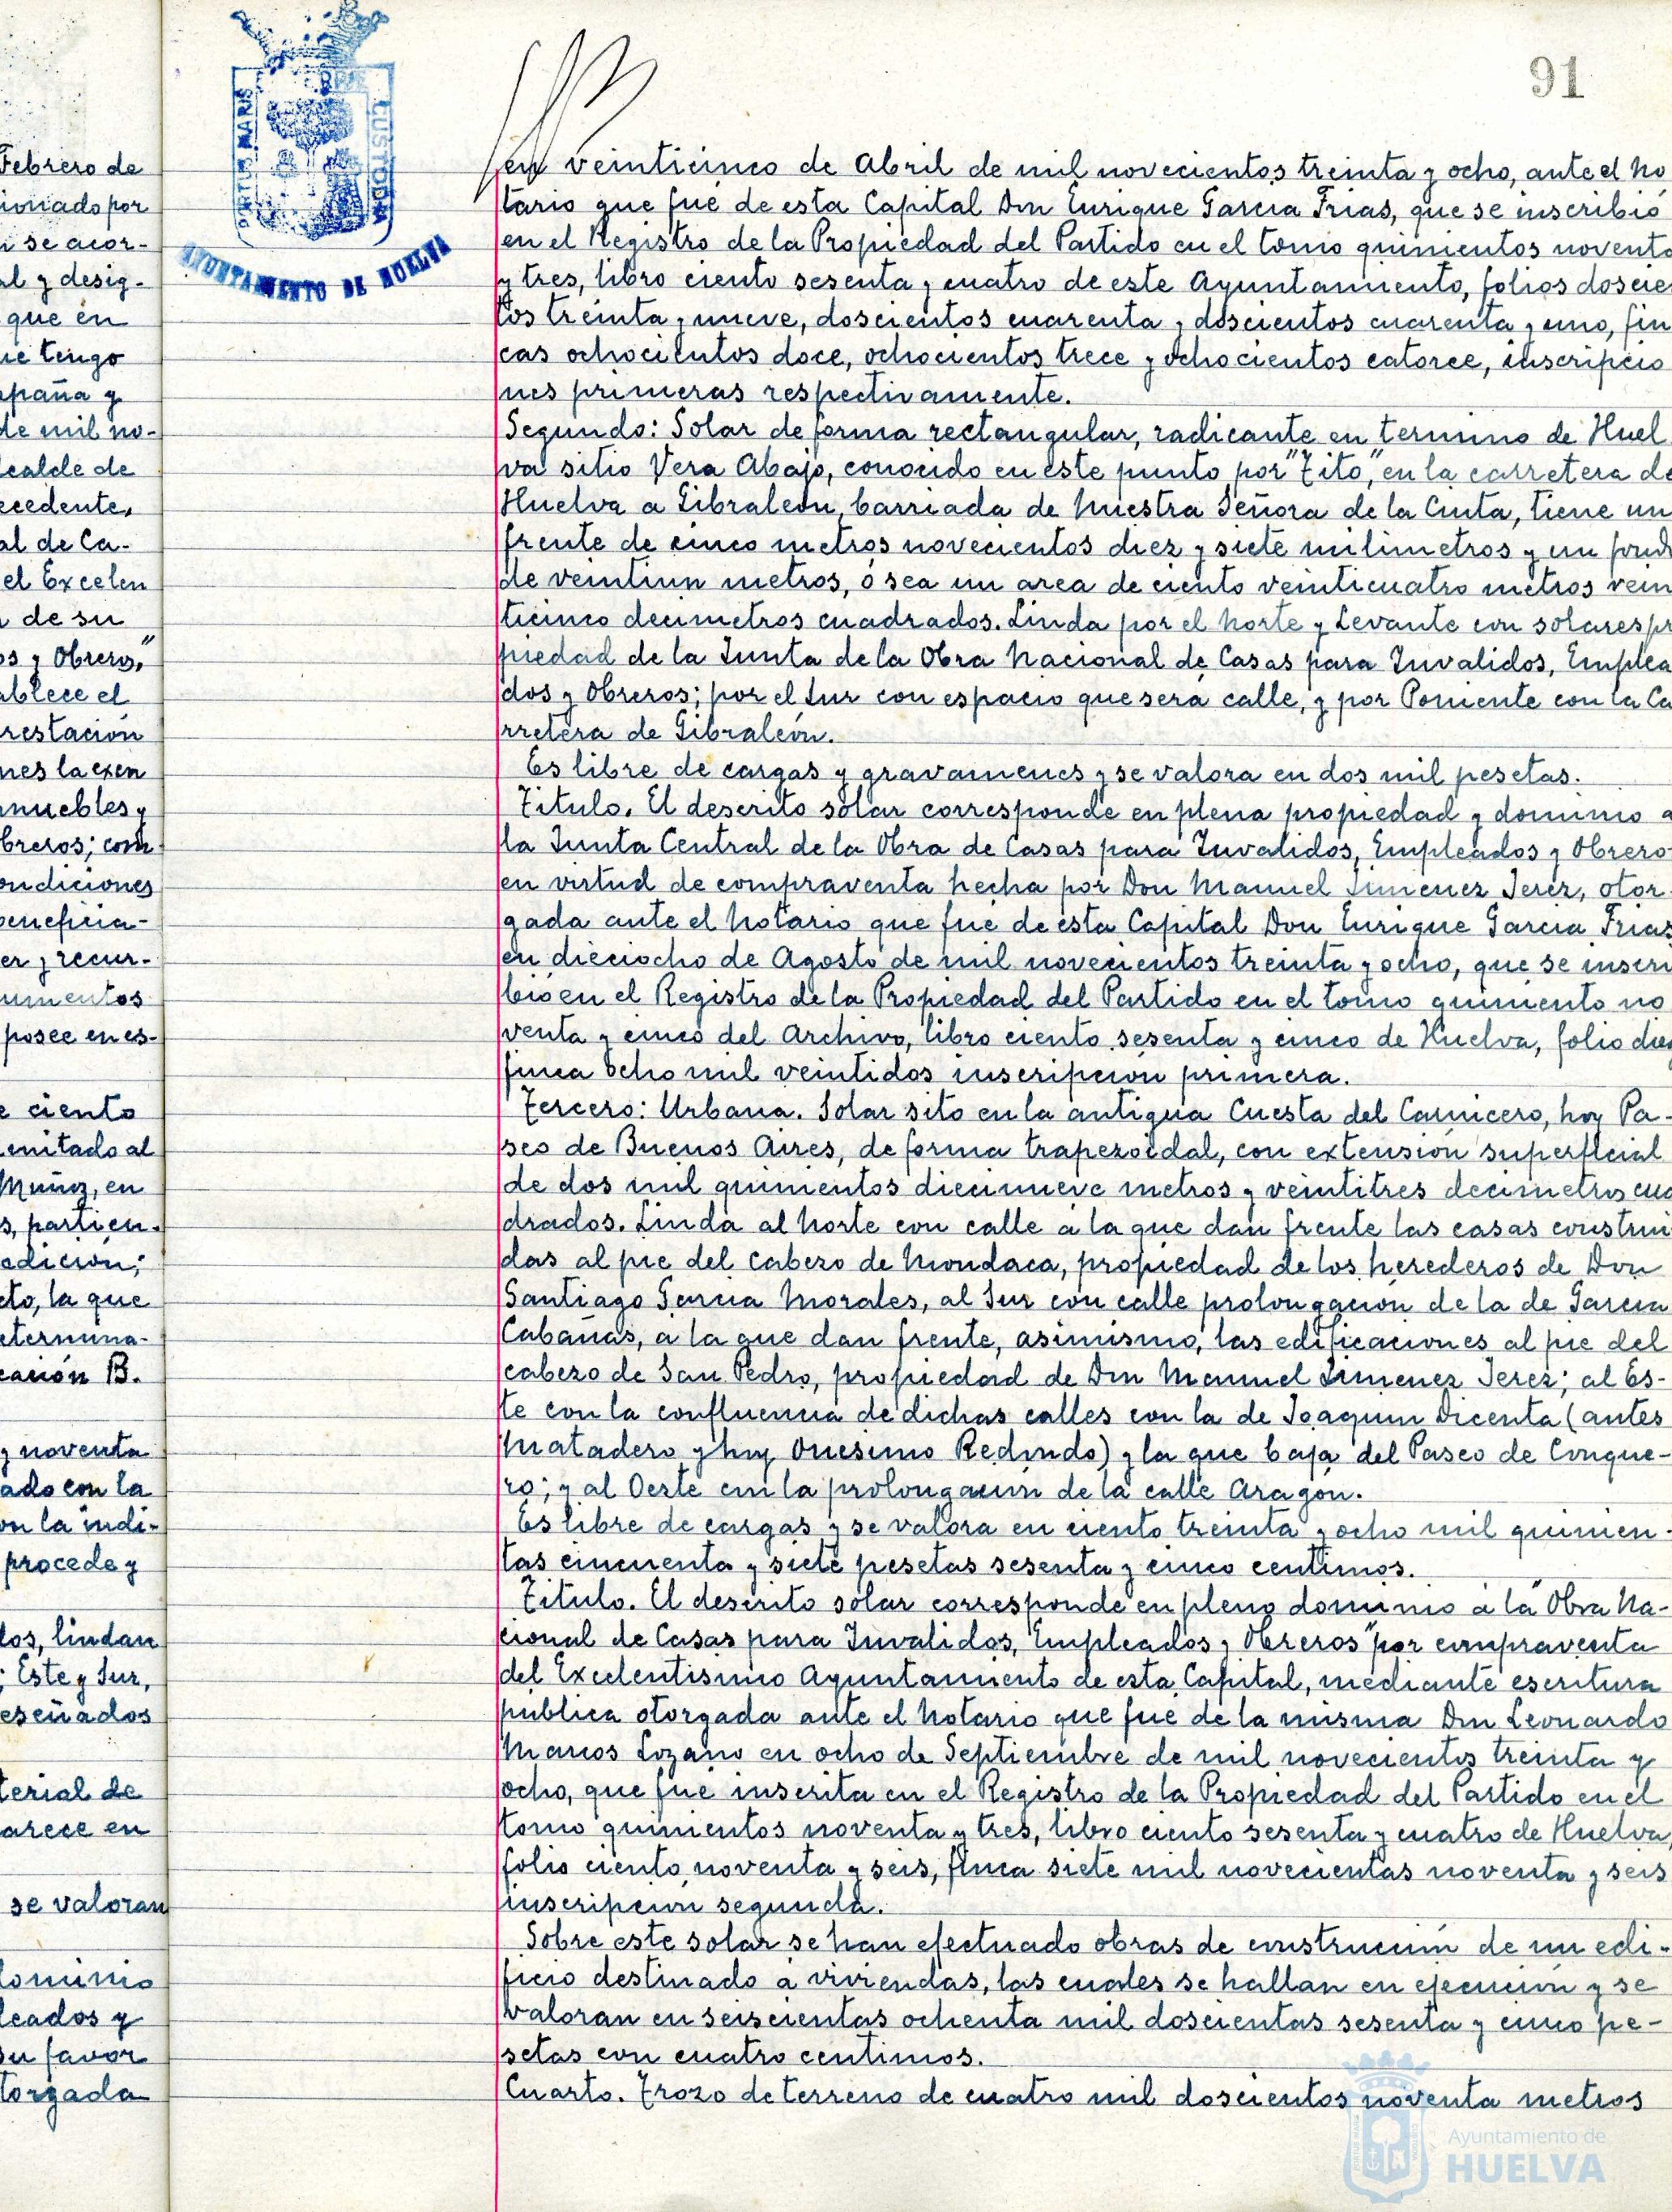 91
PORTUS MARIS
CUSTODIA
AYUNTAMIENTO DE HUELVA
Febrero de
ionado por
n se acor-
al y desig-
que en
ue tengo
spaña y
de mil no-
lcalde de
ecedente,
al de Ca-
el Excelen
n de su
os y Obreros,"
ablece el
restación
nes la exen
nmuebles y
breros; com
ondiciones
beneficia-
er y recur-
umentos
posee en es-
e ciento
enitado al
Muñoz, en
s, partien-
edición;
cto, la que
etermina-
cación B.
y noventa
ado con la
on la indi-
procede y
dos, lindan
; Este y Sur,
eseñados
terial de
arece en
se valoran
dominio
leados y
su favor
torgada
en veinticinco de Abril de mil novecientos treinta y ocho, ante el No
tario que fué de esta Capital Don Enrique Garcia Frias, que se inscribió
en el Registro de la Propiedad del Partido en el tomo quinientos noventa
y tres, libro ciento sesenta y cuatro de este Ayuntamiento, folios doscie
tos treinta y nueve, doscientos cuarenta y doscientos cuarenta y uno, fin
cas ochocientos doce, ochocientos trece y ochocientos catorce, inscripcio
nes primeras respectivamente.
Segundo: Solar de forma rectangular, radicante en termino de Huel
va sitio Vera Abajo, conocido en este punto por "Tito," en la carretera de
Huelva a Gibraleon, barriada de Nuestra Señora de la Cinta, tiene un
frente de cinco metros novecientos diez y siete milimetros y un fondo
de veintiun metros, ó sea un area de ciento veinticuatro metros vein
ticinco decimetros cuadrados. Linda por el Norte y Levante con solares pr
piedad de la Junta de la Obra Nacional de Casas para Invalidos, Emplea
dos y Obreros; por el Sur con espacio que será calle, y por Poniente con la Ca
rretera de Gibraleón.
Es libre de cargas y gravamenes y se valora en dos mil pesetas.
Titulo. El descrito solar corresponde en plena propiedad y dominio a
la Junta Central de la Obra de Casas para Invalidos, Empleados y Obrero
en virtud de compraventa hecha por Don Manuel Jimenez Jerez, otor-
gada ante el Notario que fué de esta Capital Don Enrique Garcia Frias
en dieciocho de Agosto de mil novecientos treinta y ocho, que se inscri
bió en el Registro de la Propiedad del Partido en el tomo quiniento no
venta y cinco del Archivo, libro ciento sesenta y cinco de Huelva, folio diez
finca ocho mil veintidos inscripcion primera.
Tercero: Urbana. Solar sito en la antigua Cuesta del Carnicero, hoy Pa-
seo de Buenos Aires, de forma trapezoidal, con extension superficial
de dos mil quinientos diecinueve metros y veintitres decimetros cua
drados. Linda al Norte con calle a la que dan frente las casas construi
das al pie del Cabezo de Mondaca, propiedad de los herederos de Don
Santiago Garcia Morales, al Sur con calle prolongacion de la de Garcia
Cabañas, a la que dan frente, asimismo, las edificaciones al pie del
cabezo de San Pedro, propiedad de Don Manuel Jimenez Jerez; al Es-
te con la confluencia de dichas calles con la de Joaquin Dicenta (antes
Matadero y hoy Onesimo Redondo) y la que baja del Paseo de Conque-
ro; y al Oeste con la prolongación de la calle Aragón.
Es libre de cargas y se valora en ciento treinta y ocho mil quinien-
tas cincuenta y siete pesetas sesenta y cinco centimos.
Titulo. El descrito solar corresponde en pleno dominio a la "Obra Na-
cional de Casas para Invalidos, Empleados y Obreros" por compraventa
del Excelentisimo Ayuntamiento de esta Capital, mediante escritura
publica otorgada ante el Notario que fué de la misma Don Leonardo
Marcos Lozano en ocho de Septiembre de mil novecientos treinta y
ocho, que fué inscrita en el Registro de la Propiedad del Partido en el
tomo quinientos noventa y tres, libro ciento sesenta y cuatro de Huelva,
folio ciento noventa y seis, finca siete mil novecientas noventa y seis
inscripcion segunda.
Sobre este solar se han efectuado obras de construccion de un edi-
ficio destinado a viviendas, las cuales se hallan en ejecución y se
valoran en seiscientas ochenta mil doscientas sesenta y cinco pe-
setas con cuatro centimos.
Cuarto. Trozo de terreno de cuatro mil doscientos noventa metros
Ayuntamiento de
HUELVA